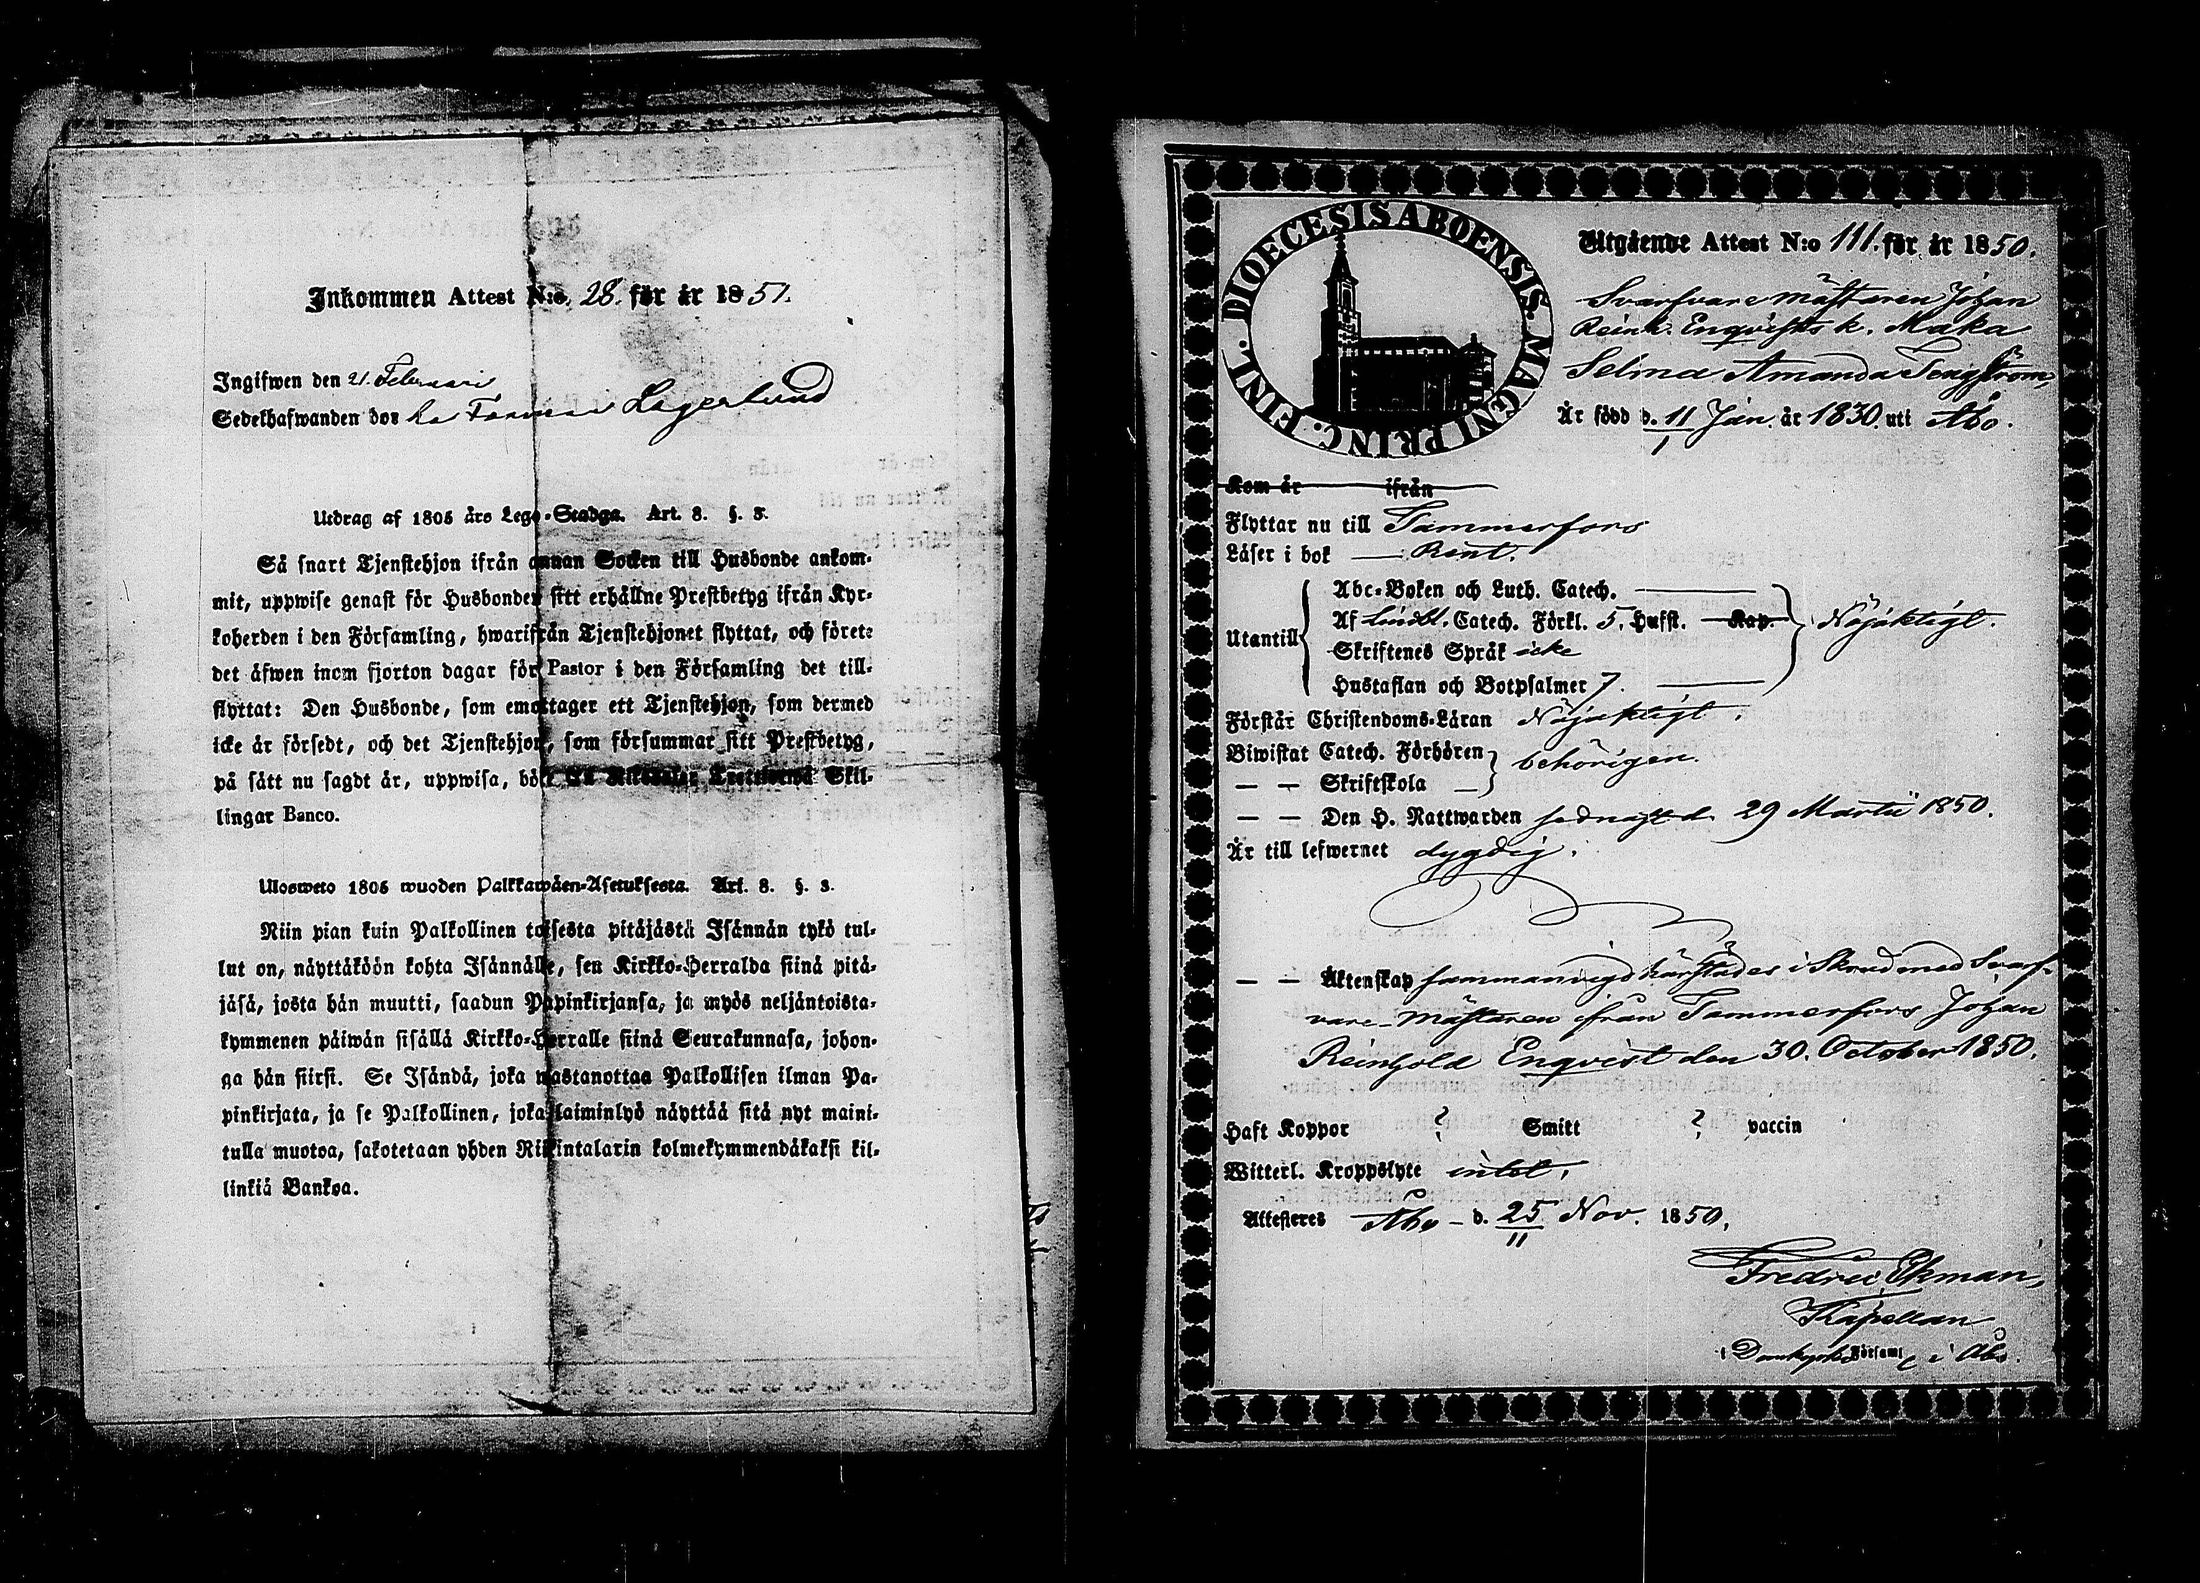 Inkommen Attest N:o. 28. för år 1851.
Ingifwen den 21. Februari
Sedelhafwanden bor Lagerlund
Utdrag af 1805 års Lego-Stadga. Art. 8. §. 3.
Så snart Tjenstehjon ifrån annan Socken till Husbonde ankom-
mit, uppwise genast för Husbonden sitt erhållne Prestbetyg ifrån Kyr-
koherden i den Församling, hwarifrån Tjenstehjonet flyttat, och förete
det äfwen inom fjorton dagar för Pastor i den Församling det till-
flyttat: Den Husbonde, som emottager ett Tjenstehjon, som dermed
icke är försedt, och det Tjenstehjon, som försummar sitt Prestbetyg,
på sätt nu sagdt är, uppwisa, böte En Riksdaler Trettiotwå Skil-
lingar Banco.
Ulosweto 1805 wuoden Palkkawäen-Asetuksesta. Art. 8. §. 3.
Niin pian kuin Palkollinen toisesta pitäjästä Isännän tykö tul-
lut on, näyttäköön kohta Isännälle, sen Kirkko-Herralda siinä pitä-
jäsä, josta hän muutti, saadun Papinkirjansa, ja myös neljäntoista-
kymmenen päiwän sisällä Kirkko-Herralle siinä Seurakunnasa, johon-
ga hän siirsi. Se Isändä, joka wastanottaa Palkollisen ilman Pa-
pinkirjata, ja se Palkollinen, joka laiminlyö näyttää sitä nyt maini-
tulla muotoa, sakotetaan yhden Riikintalarin kolmekymmendäkaksi kil-
linkiä Bankoa.
DIOECESIS ABOENSIS. MAGNI PRINC. FINL.
Utgående Attest N:o 111. för år 1850.
Svarfvare mästaren Johan
Reinh. Enqvists k. Maka
Selma Amanda Tengström,
Är född d. 11/1 Jan. år 1830. uti Åbo.
Kom år ifrån
Flyttar nu till Tammerfors
Läser i bok — Rent.
Utantill
Abc-Boken och Luth. Catech.
Af Lindbl. Catech. Förkl. 5. Hufst. Kap.
Skriftenes Språk icke
Hustaflan och Botpsalmer 7.
Nöjaktigt.
Förstår Christendoms-Läran Nöjaktigt.
Biwistat Catech. Förhören
— — Skriftskola
behörigen.
— — Den H. Nattwarden sednast d. 29 Martii 1850.
Är till lefwernet dygdig.
— — Äktenskap sammanvigd härstädes i Skrud med Svarf-
vare-mästaren ifrån Tammerfors Johan
Reinhold Enqvist den 30. October 1850.
Haft Koppor ? Smitt ? vaccin
Witterl. Kroppslyte intet.
Attesteras Åbo - d. 25/11 Nov. 1850.
Fredric Ekman,
Kapellan
i Domkyrko Församl. i Åbo.